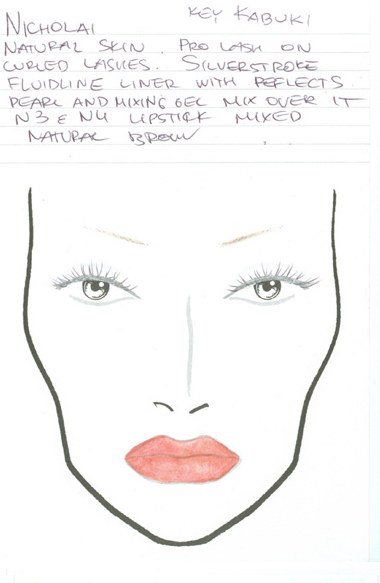 NICHOLAI KEY KABUKI
NATURAL SKIN. PRO LASH ON
CURLED LASHES. SILVERSTROKE
FLUIDLINE LINER WITH REFLECTS
PEARL AND MIXING GEL MIX OVER IT
N3 & N4 LIPSTICK MIXED
NATURAL BROW